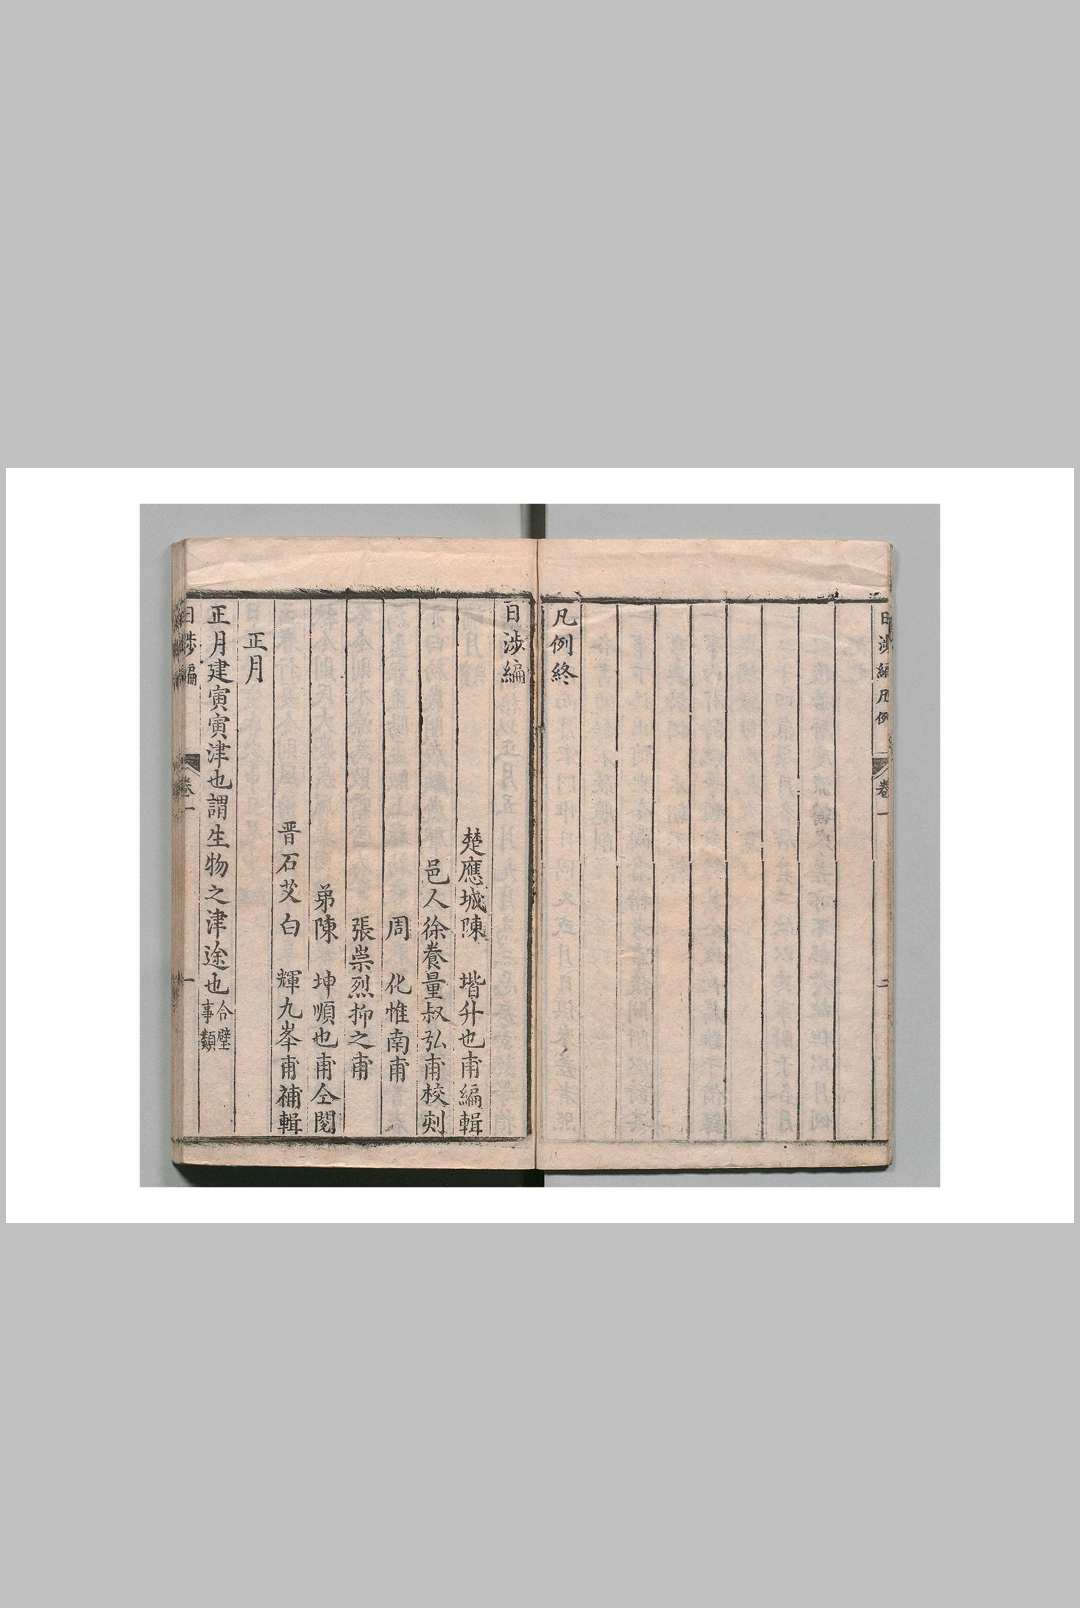 日涉編凡例
卷一
二
凡例終
日涉編
楚應城陳 堦升也甫編輯
邑人徐養量叔弘甫校刻
周 化惟南甫
張崇烈抑之甫
弟陳 坤順也甫仝閱
晋石艾白 輝九峯甫補輯
正月
正月建寅寅津也謂生物之津途也合璧事類
日涉編
卷一
一